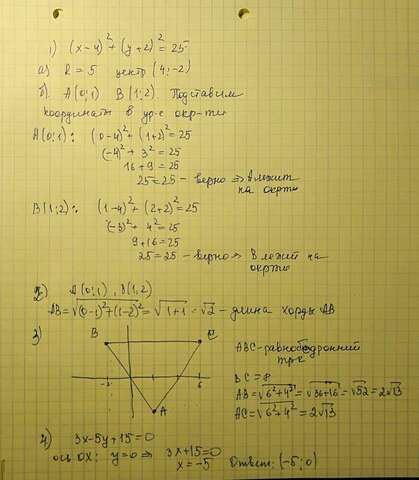 1) (x-4)² + (y+2)² = 25
а) R = 5 центр (4;-2)
б) A(0;1) B(1;2) Подставим
координаты в ур-е окр-ти
A(0;1): (0-4)² + (1+2)² = 25
(-4)² + 3² = 25
16+9 = 25
25 = 25 - верно ⇒ A лежит
на окр-ти
B(1;2): (1-4)² + (2+2)² = 25
(-3)² + 4² = 25
9+16 = 25
25 = 25 - верно ⇒ B лежит на
окр-ти
2) A(0;1), B(1;2)
AB = √(0-1)²+(1-2)² = √1+1 = √2 - длина хорды AB
3)
B C
-2 6
A
ABC - равнобедренный
тр-к
BC = 8
AB = √6²+4² = √36+16 = √52 = 2√13
AC = √6²+4² = 2√13
4) 3x-5y+15=0
ось OX: y=0 ⇒ 3x+15=0
x = -5 Ответ: (-5;0)